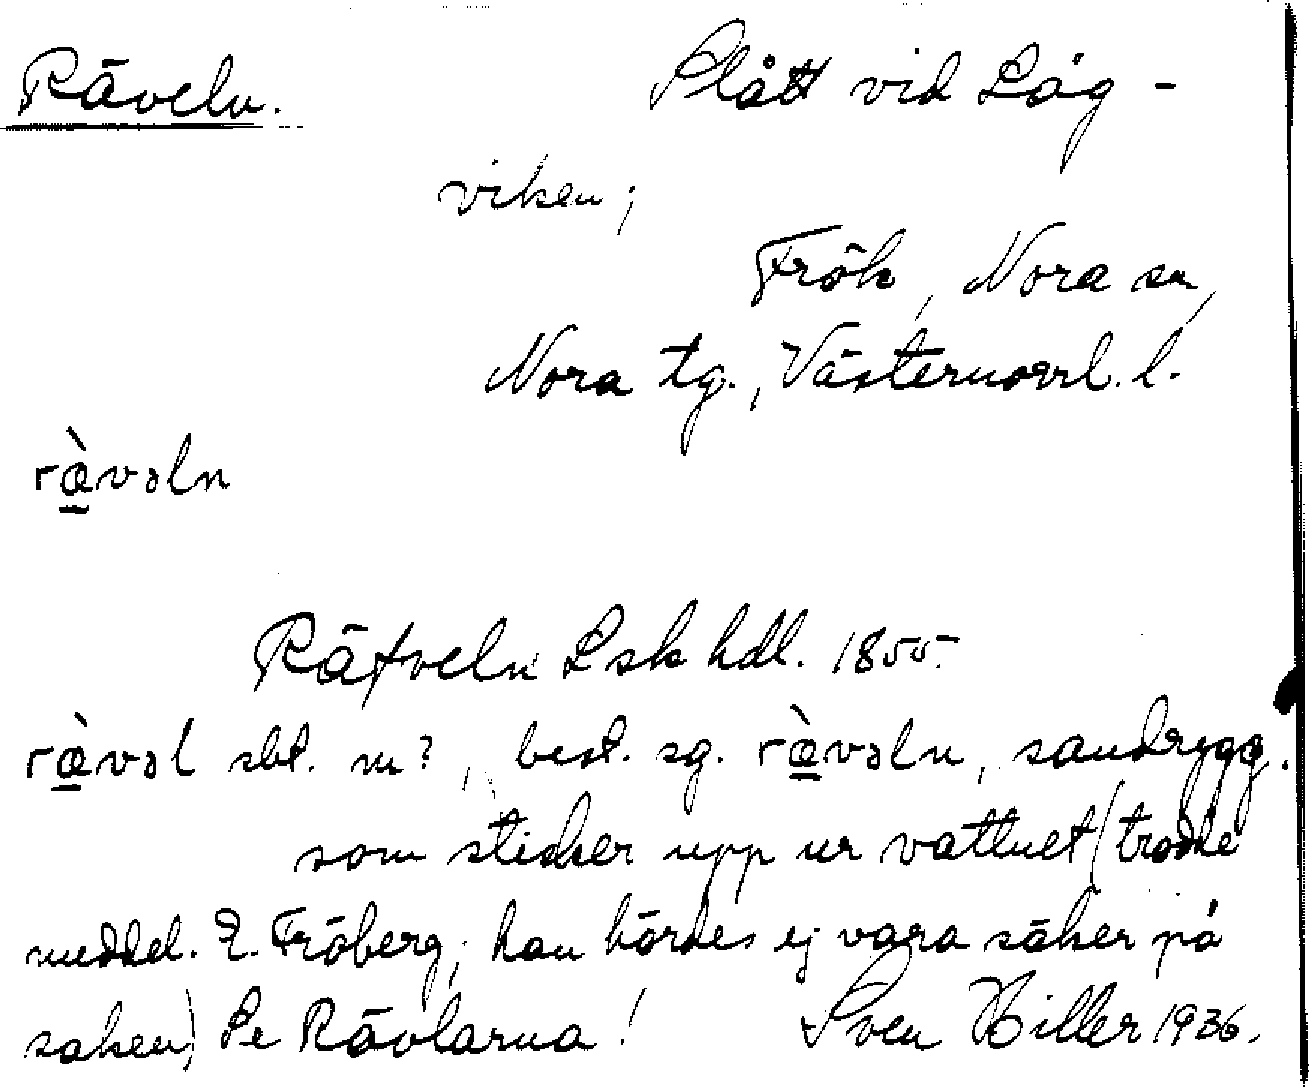 Räveln. Slått vid Låg-
viken;
Frök, Nora sn,
Nora tg., Västernorrl. l.
ræ̀vəln
Räfveln Lsk hdl. 1855.
ræ̀vəl sbt. m?, best. sg. ræ̀vəln, sandrygg.
som sticker upp ur vattnet (trodde
meddel. E. Fröberg; han hördes ej vara säker på
saken) Se Rävlarna! Sven Hiller 1936.